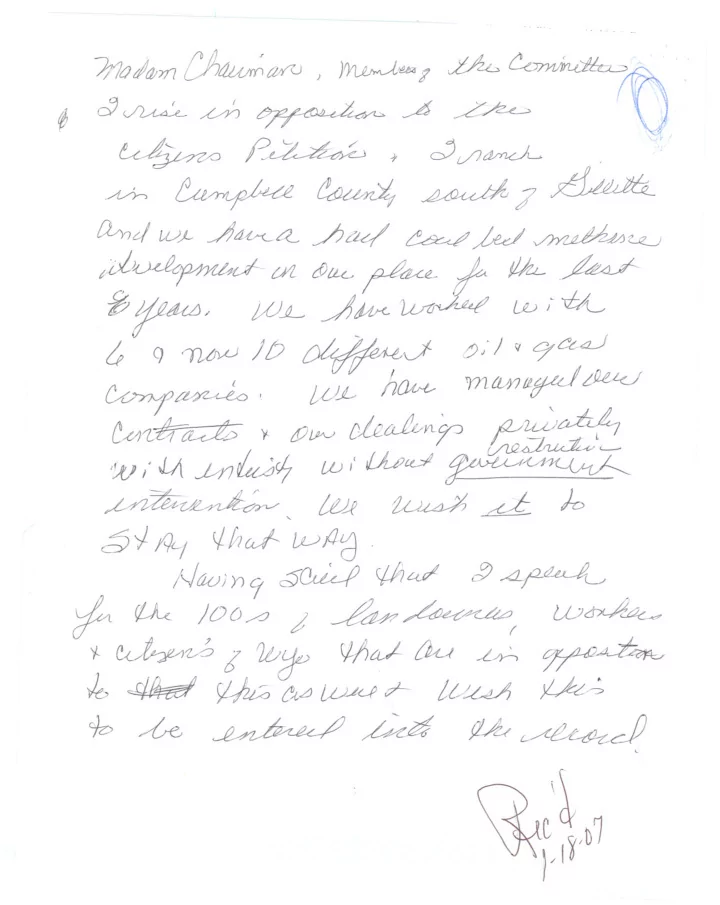 Madam Chairman, Members of the Committee
I rise in opposition to the
Citizens Petition & I ranch
in Campbell County south of Gillette
and we have had coal bed methane
development on our place for the last
8 years. We have worked with
6 & now 10 different oil & gas
companies. We have managed our
contracts & our dealings privately
restriction
with industry without government
intervention. We wish it to
stay that way.
Having said that I speak
for the 100s of landowners, workers
& citizen's of Wyo that are in opposition
to that this as well & wish this
to be entered into the record.
Rec'd
1-18-07